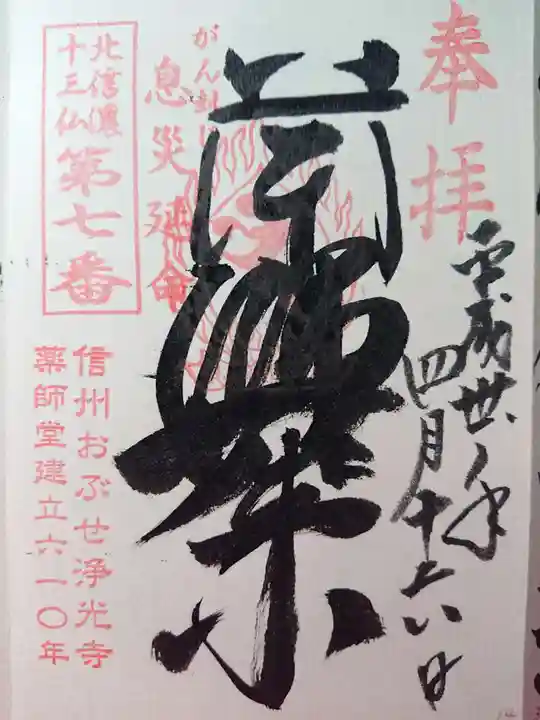 奉拝
平成卅年
四月十六日
がん封じ
息災延命
北信濃
十三仏
第七番
信州おぶせ浄光寺
薬師堂建立六一〇年